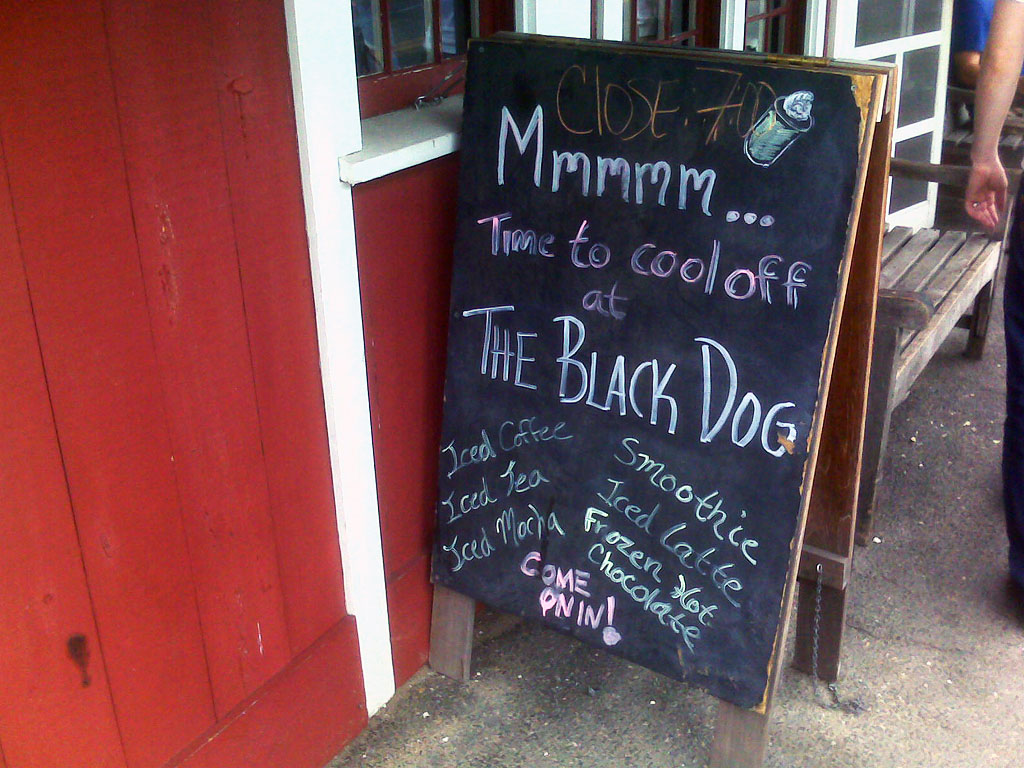 CLOSE. 7:00
Mmmmm...
Time to cool off
at
THE BLACK DOG
Iced Coffee
Iced Tea
Iced Mocha
Smoothie
Iced Latte
Frozen Hot
Chocolate
COME
ON IN!